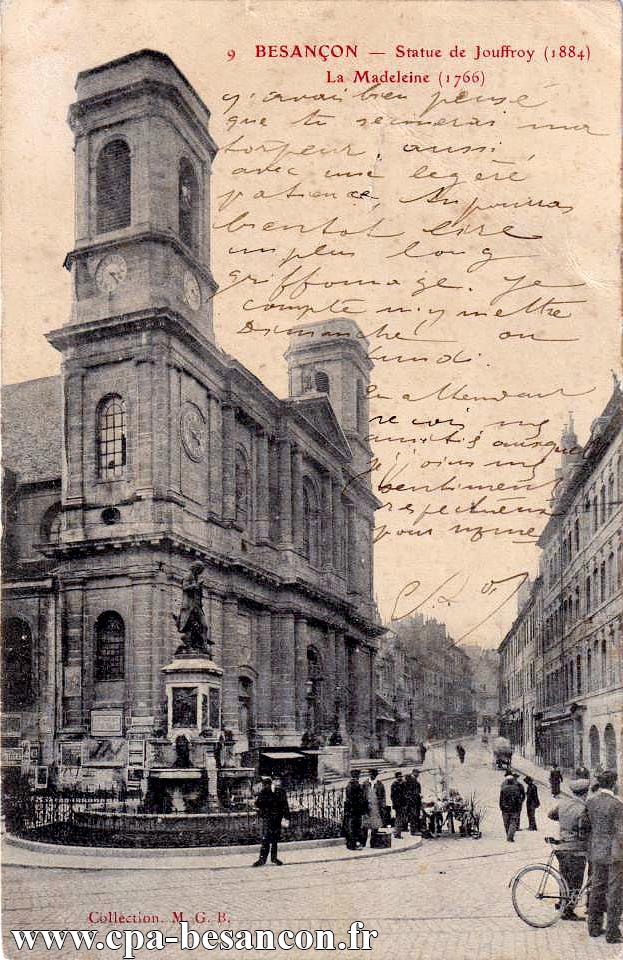 9 BESANÇON — Statue de Jouffroy (1884)
La Madeleine (1766)
J'avais bien pensé
que tu secouerais ma
torpeur, aussi,
avec une légère
patience, tu pourras
bientôt lire
un plus long
griffonage. Je
compte m'y mettre
Dimanche ou
lundi.
En attendant
reçois mes
amitiés auxquelles
j'joins mes
sentiments
respectueux
pour
Collection. M. G. B.
www.cpa-besancon.fr